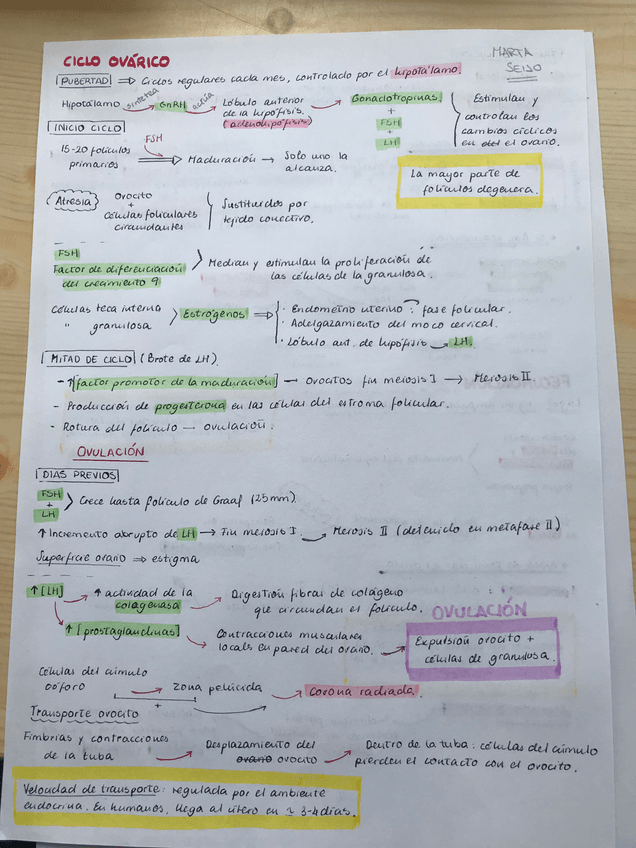 CICLO OVÁRICO
MARTA
SEIJO
PUBERTAD ⇒ Ciclos regulares cada mes, controlado por el hipotálamo.
Hipotálamo sintetiza → GnRH actúa → Lóbulo anterior de la hipófisis. (adenohipófisis) → Gonadotropinas. FSH + LH
Estimulan y
controlan los
cambios cíclicos
en el ovario.
INICIO CICLO
15-20 folículos
primarios
FSH
⇒ Maduración → Solo uno la
alcanza.
La mayor parte de
folículos degenera.
Atresia
Ovocito
+
células foliculares
circundantes
Sustituidos por
tejido conectivo.
FSH
Factor de diferenciación
del crecimiento 9
Median y estimulan la proliferación de
las células de la granulosa.
Células teca interna
" granulosa
Estrógenos ⇒
· Endometrio uterino : fase folicular.
· Adelgazamiento del moco cervical.
· Lóbulo ant. de hipófisis → LH.
MITAD DE CICLO (Brote de LH)
- ↑[factor promotor de la maduración] → ovocitos fin meiosis I → Meiosis II.
- Producción de progesterona en las células del estroma folicular.
- Rotura del folículo — ovulación.
OVULACIÓN
DIAS PREVIOS
FSH
+
LH
Crece hasta folículo de Graaf (25mm)
↑ Incremento abrupto de LH → Fin meiosis I → Meiosis II (detenido en metafase II)
Superficie ovario ⇒ estigma
↑[LH] → ↑ actividad de la
colagenasa
→ Digestión fibras de colágeno
que circundan el folículo.
↑[prostaglandinas] → Contracciones musculares
locals en pared del ovario. →
OVULACIÓN
Expulsión ovocito +
células de granulosa.
Células del cúmulo
oóforo
→ zona pelúcida → Corona radiada.
+
Transporte ovocito
Fimbrias y contracciones
de la tuba
→ Desplazamiento del
ovario ovocito
→ Dentro de la tuba: células del cúmulo
pierden el contacto con el ovocito.
Velocidad de transporte: regulada por el ambiente
endocrina. En humanos, llega al útero en ≃ 3-4 días.